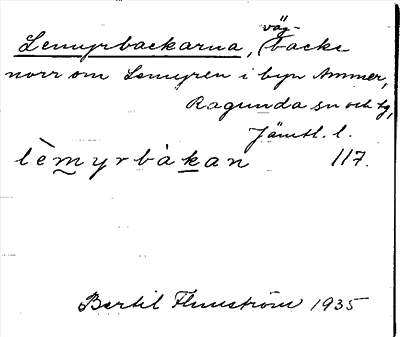 Lemyrbackarna, (väg-)backe
norr om Lemyren i byn Ammer,
Ragunda sn och tg,
Jämtl. l.
lèmyrbàkan 117.
Bertil Flemström 1935